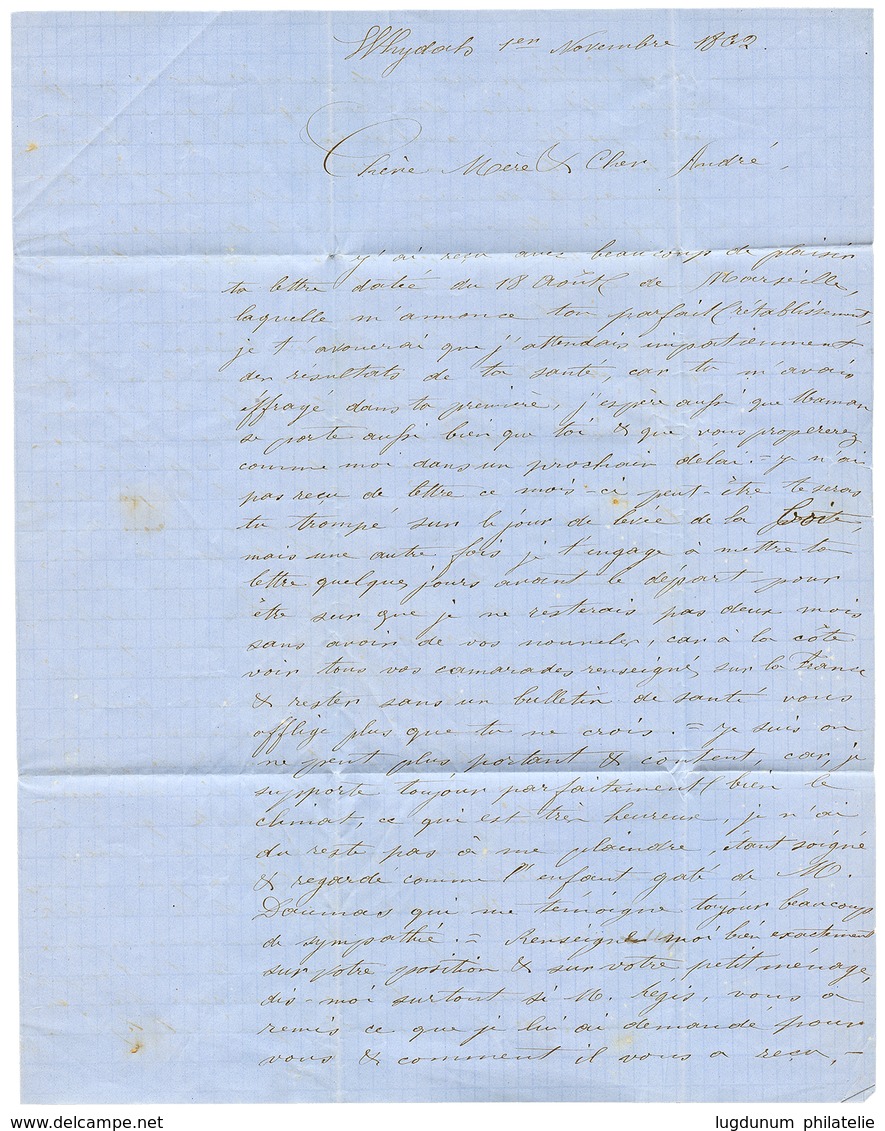 Whydah 1er Novembre 1862.
Chère Mère & Cher André,
J'ai reçu avec beaucoup de plaisir
ta lettre datée du 18 Août de Marseille,
laquelle m'annonce ton parfait rétablissement,
je t'avouerai que j'attendais impatiemment
des résultats de ta santé, car tu m'avais
effrayé dans ta première, j'espère aussi que Maman
se porte aussi bien que toi & que vous propererez
comme moi dans un prochain délai. = Je n'ai
pas reçu de lettre ce mois-ci peut-être te seras
tu trompé sur le jour de levée de la boite,
mais une autre fois je t'engage à mettre ta
lettre quelques jours avant le départ pour
être sur que je ne resterais pas deux mois
sans avoir de vos nouvelles, car à la côte
voir tous vos camarades renseignés sur la France
& rester sans un bulletin de santé vous
afflige plus que tu ne crois. = Je suis on
ne peut plus portant & content, car, je
supporte toujour parfaitement bien le
climat, ce qui est très heureux, je n'ai
du reste pas à me plaindre, étant soigné
& regardé comme l'enfant gaté de M.
Daumas qui me témoigne toujour beaucoup
de sympathie. = Renseigne moi bien exactement
sur votre position & sur votre petit ménage,
dis-moi surtout si M. Régis, vous a
remis ce que je lui ai demandé pour
vous & comment il vous a reçu, -
lugdunum philatelie